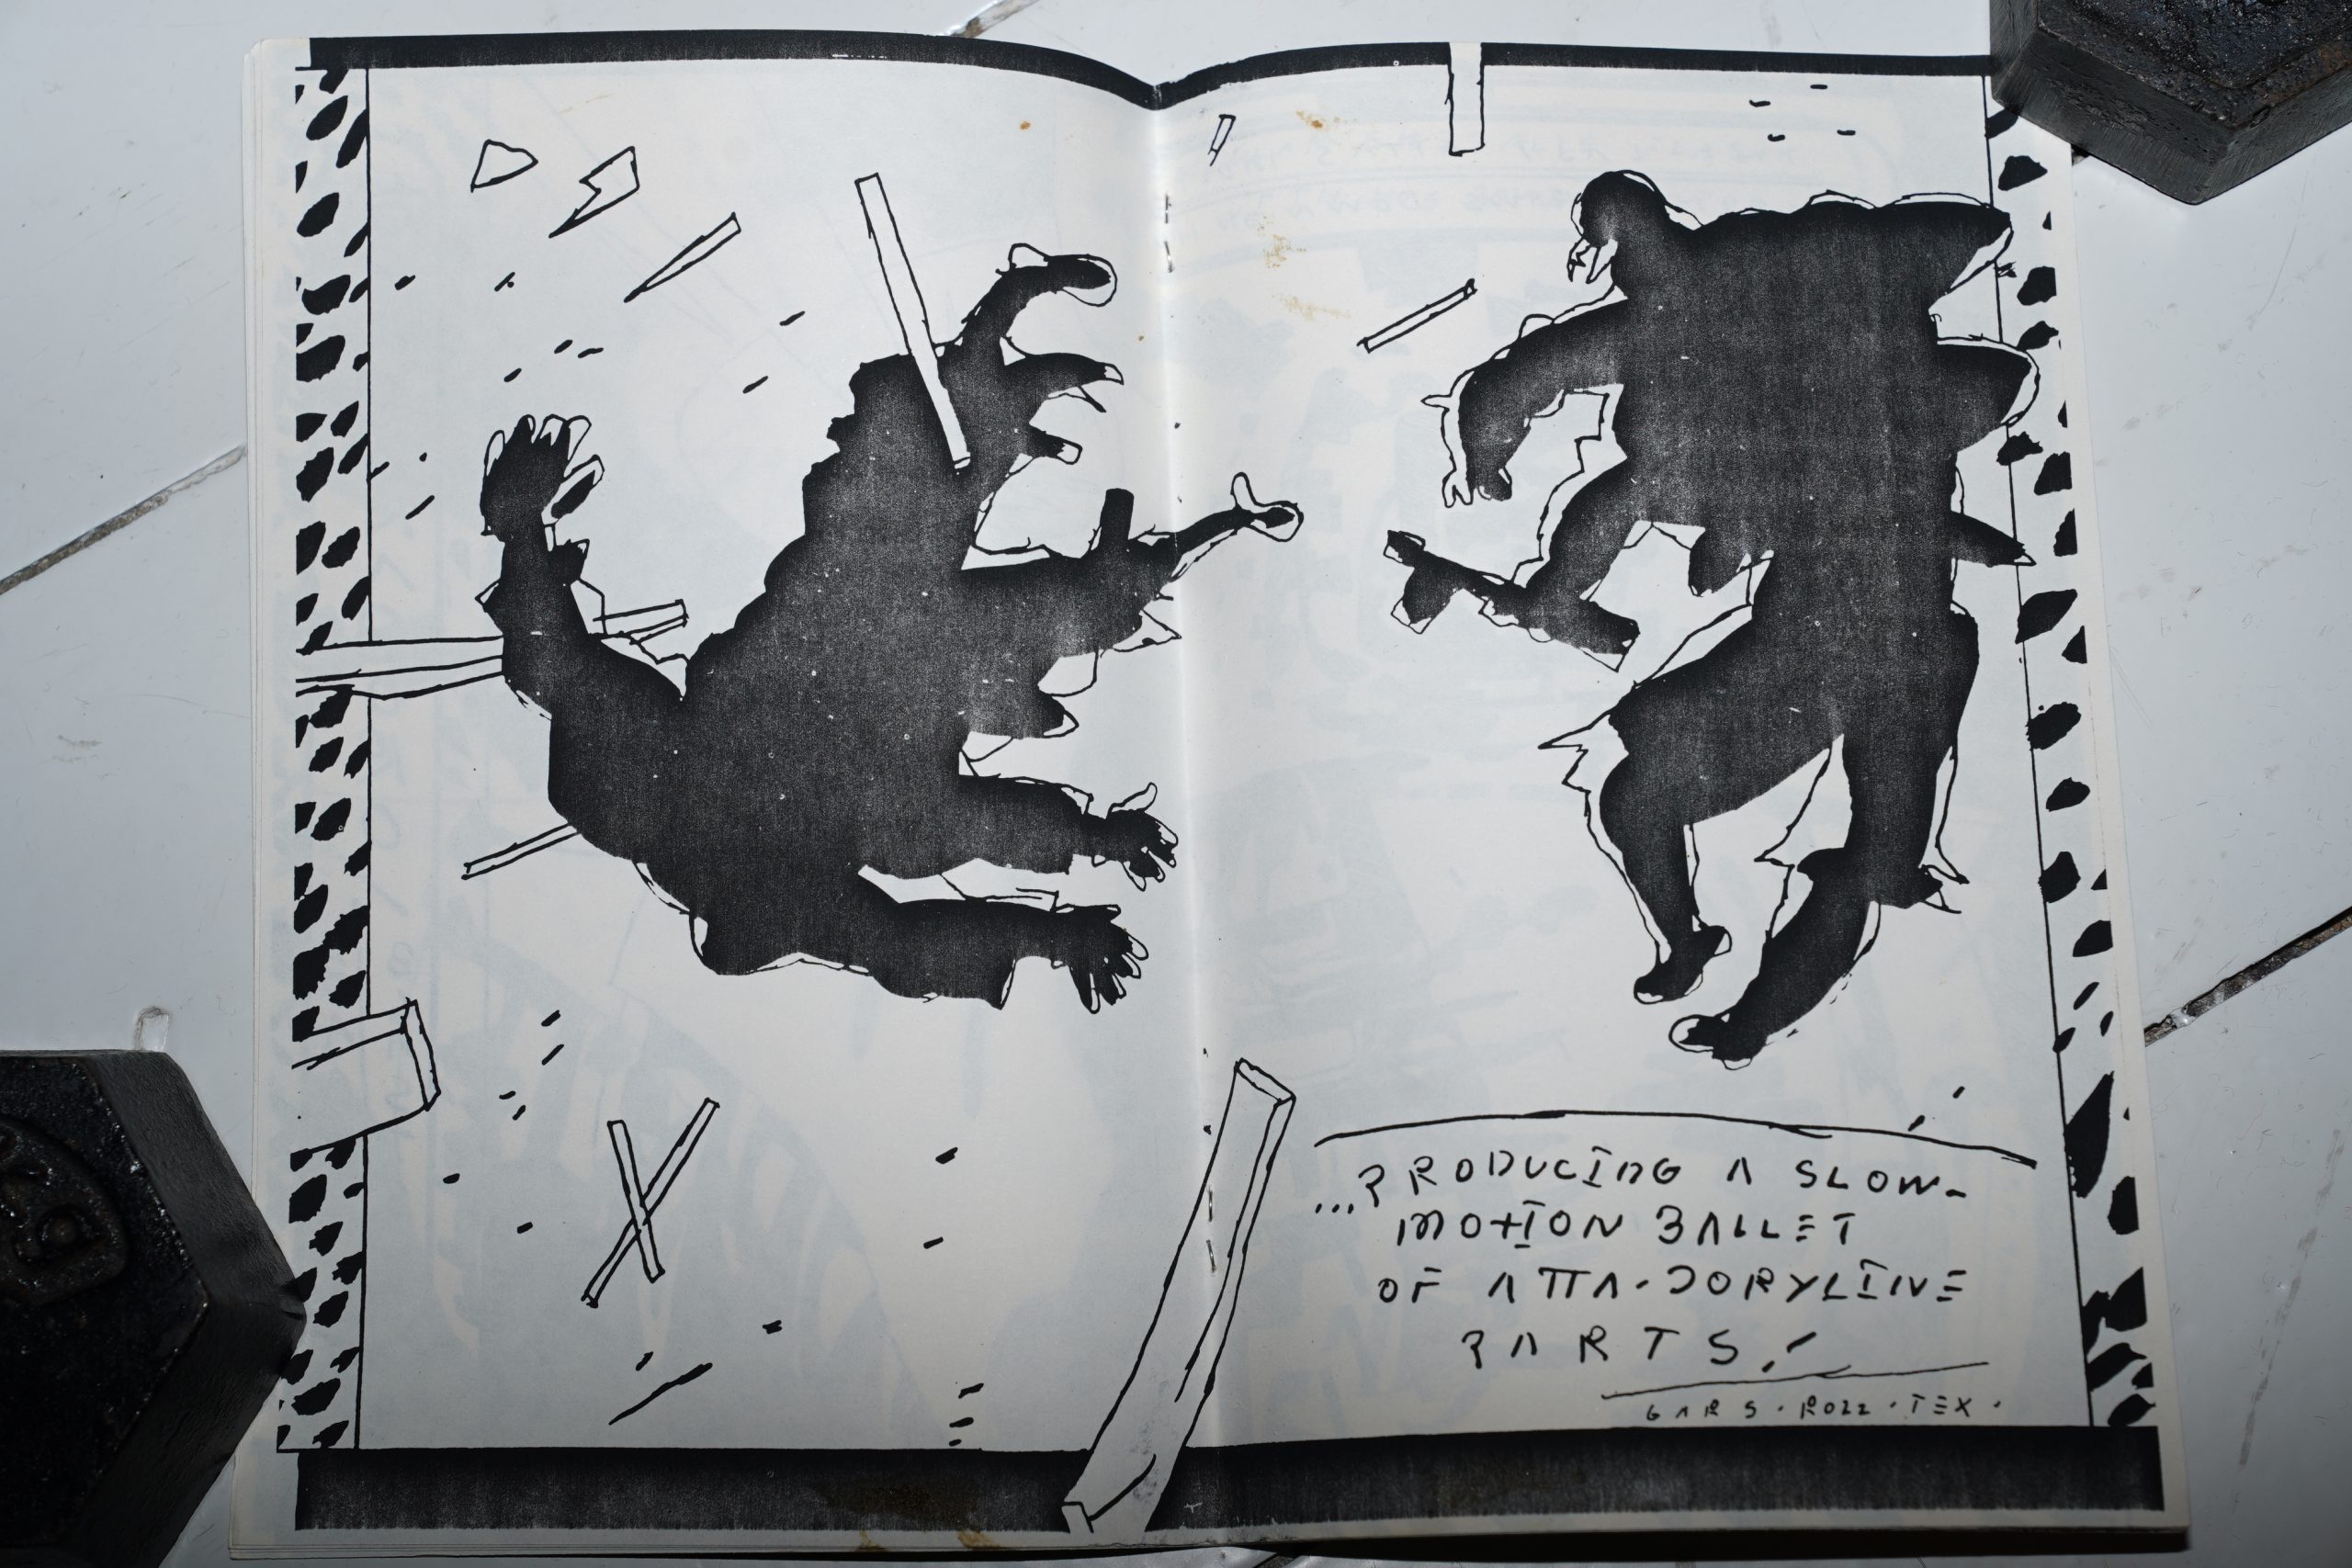 ...PRODUCING A SLOW-
MOTION BALLET
OF ATTA-DORYLINE
PARTS!
GARS·ROZZ·TEX.